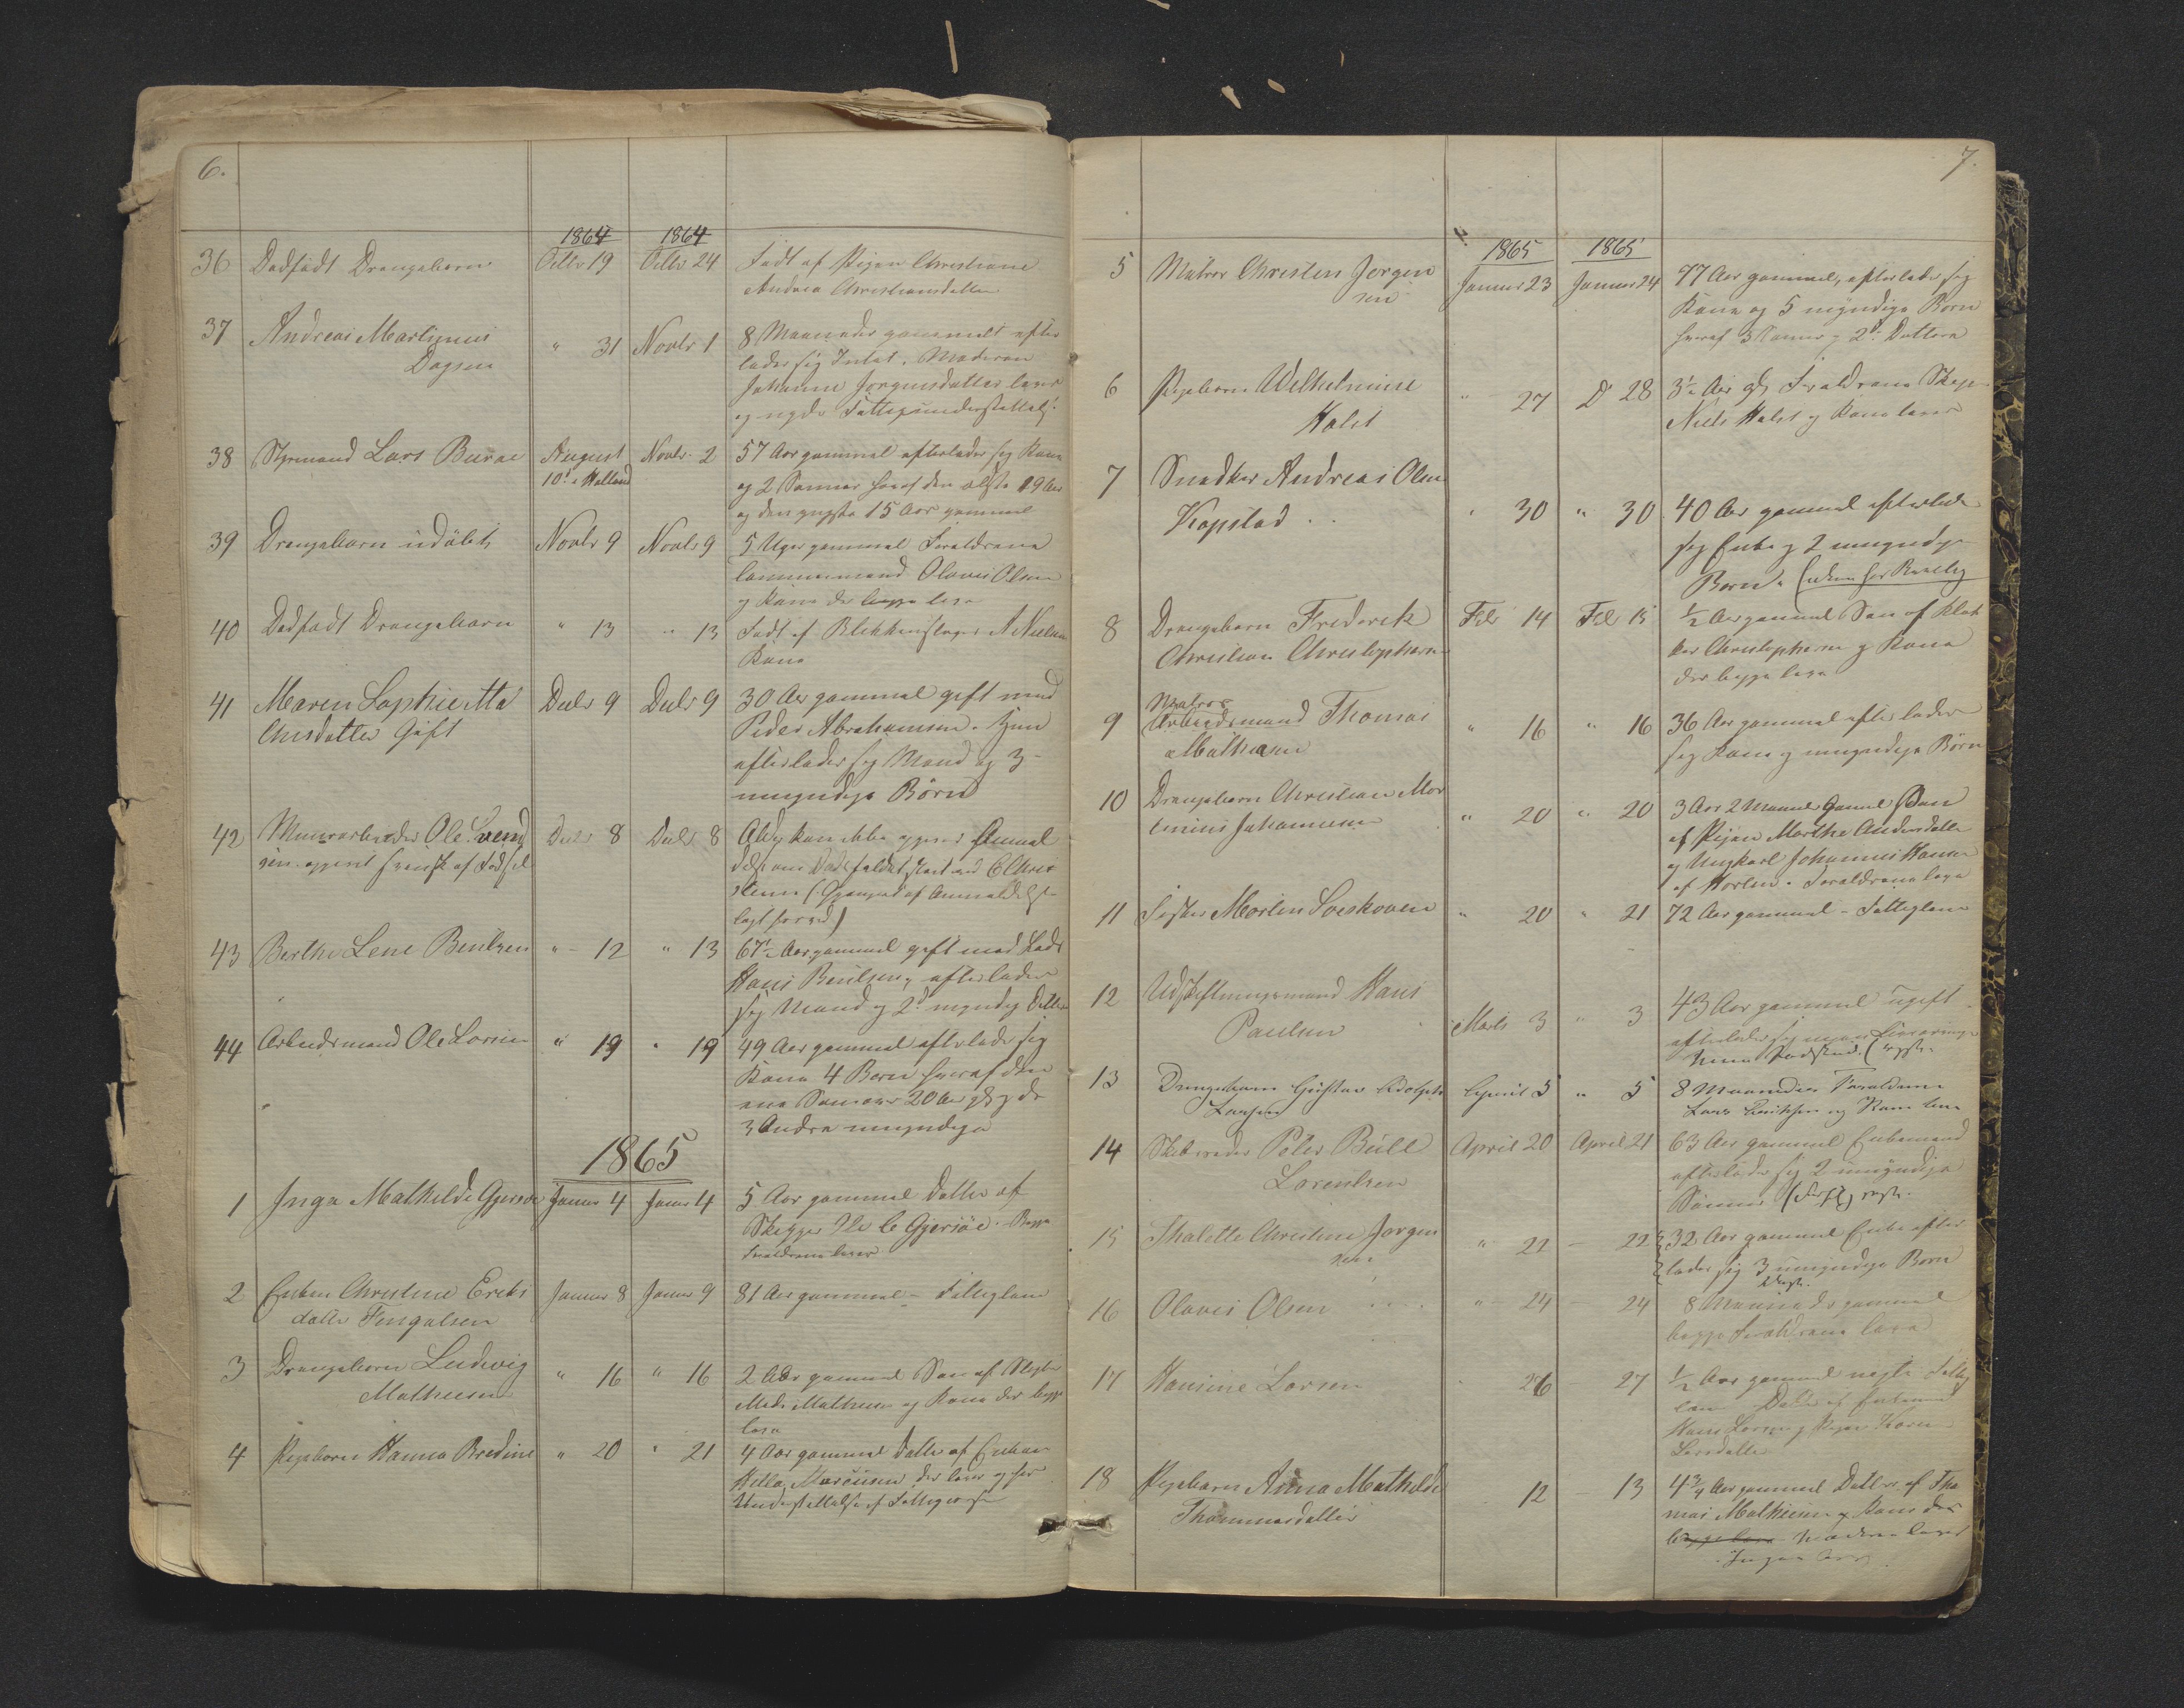 6.
1864 1864
36 Dødfødt Drengebarn Octbr 19 Octbr 24 Født af Pigen Christiane
Andrea Christiansdatter
37 Andreas Martinius " 31 Novbr 1 8 Maaneder gammelt efter
Dagsen lader sig Intet. Moderen
Johanne Jørgensdatter lever
og nyder Fattigunderstøttelse
38 Styrmand Lars August Novbr. 2 57 Aar gammel efterlader sig Kone
10de i Holland og 2 Sønner hvoraf den ælste 19 Aar
og den yngste 15 Aar gammel
39 Drengebarn udøbt Novbr 9 Novbr 9 5 Uger gammel Forældrene
Olaves Olsen
og Kone der begge leve
40 Dødfødt Drengebarn " 13 " 13 Født af Blikkenslager A Nielsen
Kone
41 Maren Sophie Ma Decbr 9 Decbr 9 30 Aar gammel gift med
thisdatter Gift Peder Abrahamsen. Hun
efterlader sig Mand og 3
umyndige Børn
42 Ole Svend Decbr 8 Decbr 8 Alder kan ikke opgives
sen opgivet svensk af Fødsel
43 Berthe Lene Bentzen " 12 " 13 67½ Aar gammel gift med Lods
Hans Bentzen, efterlader
sig Mand og 2 myndig Døttre
44 Arbeidsmand Ole Larsen " 19 " 19 49 Aar gammel efterlader sig
Kone 4 Børn hvoraf den
ene Søn er 20 Aar gl og de
3 Andre umyndige
1865
1 Inga Mathilde Gjersøe Januar 4 Januar 4 5 Aar gammel Datter af
Gjersøe. Begge
Forældrene lever
2 Enken Christine Eriks Januar 8 Januar 9 81 Aar gammel - Fattiglem
datter Tingulsen
3 Drengebarn Ludvig " 16 " 16 2 Aar gammel Søn af
Mathisen Mathisen og Kone der begge
leve
4 Pigebarn Hanna Bredine " 20 " 21 4 Aar gammel Datter af Enken
der lever og har
Understøttelse af Fattigvæsenet
7.
1865 1865
5 Matros Christen Jørgen Januar 23 Januar 24 77 Aar gammel, efterlader sig
sen Kone og 5 myndige Børn
hvoraf 3 Sønner og 2de Døttere
6 Pigebarn Wilhelmine " 27 Do 28 3½ Aar gl Forældrene
Holst Niels Holst og Kone lever
7 Snedker Andreas Olsen
Kopstad " 30 " 30 40 Aar gammel efterlader
sig Enke og 2 umyndige
Børn.
8 Drengebarn Frederik Feb 14 Feb 15 ½ Aar gammel Søn af
Christian Christophersen Christophersen og Kone
der begge leve
Matros
9 Arbeidsmand Thomas " 16 " 16 36 Aar gammel efterlader
Mathisen sig Kone og umyndige Børn
10 Drengebarn Christian Mar " 20 " 20 3 Aar 2 Maaned Gammel Søn
tinius Johannesen af Pigen Marthe Andersdatter
og Ungkarl Johannes Hansen
af Horten. Forældrene leve
11 Fisker Morten Soeskoven " 20 " 21 72 Aar gammel - Fattiglem
12 Hans Marts 3 " 3 43 Aar gammel ugift
Paulsen efterlader sig
13 Drengebarn Gustav Adolph April 5 " 5 8 Maaneder Forældrene
Larsen Lars og Kone leve
14 Skibsreder Peter Bull April 20 April 21 63 Aar gammel Enkemand
Lorentzen efterlader sig 2 umyndige
Sønner
15 Thalette Christine Jørgen " 22 — 22 32 Aar gammel Enke efter
sen lader sig 3 umyndige Børn
16 Olaves Olsen " 24 — 24 8 Maaneder gammel
begge Forældrene leve
17 Hansine Larsen 26 — 27 ½ Aar gammel
Datter af Enkemand
Hans Larsen og Pigen Karen
Larsdatter
18 Pigebarn Anna Mathilde 12 — 13 4¾ Aar gammel Datter af Tho
Thommasdatter mas Mathisen og Kone der
begge leve Moderen lever